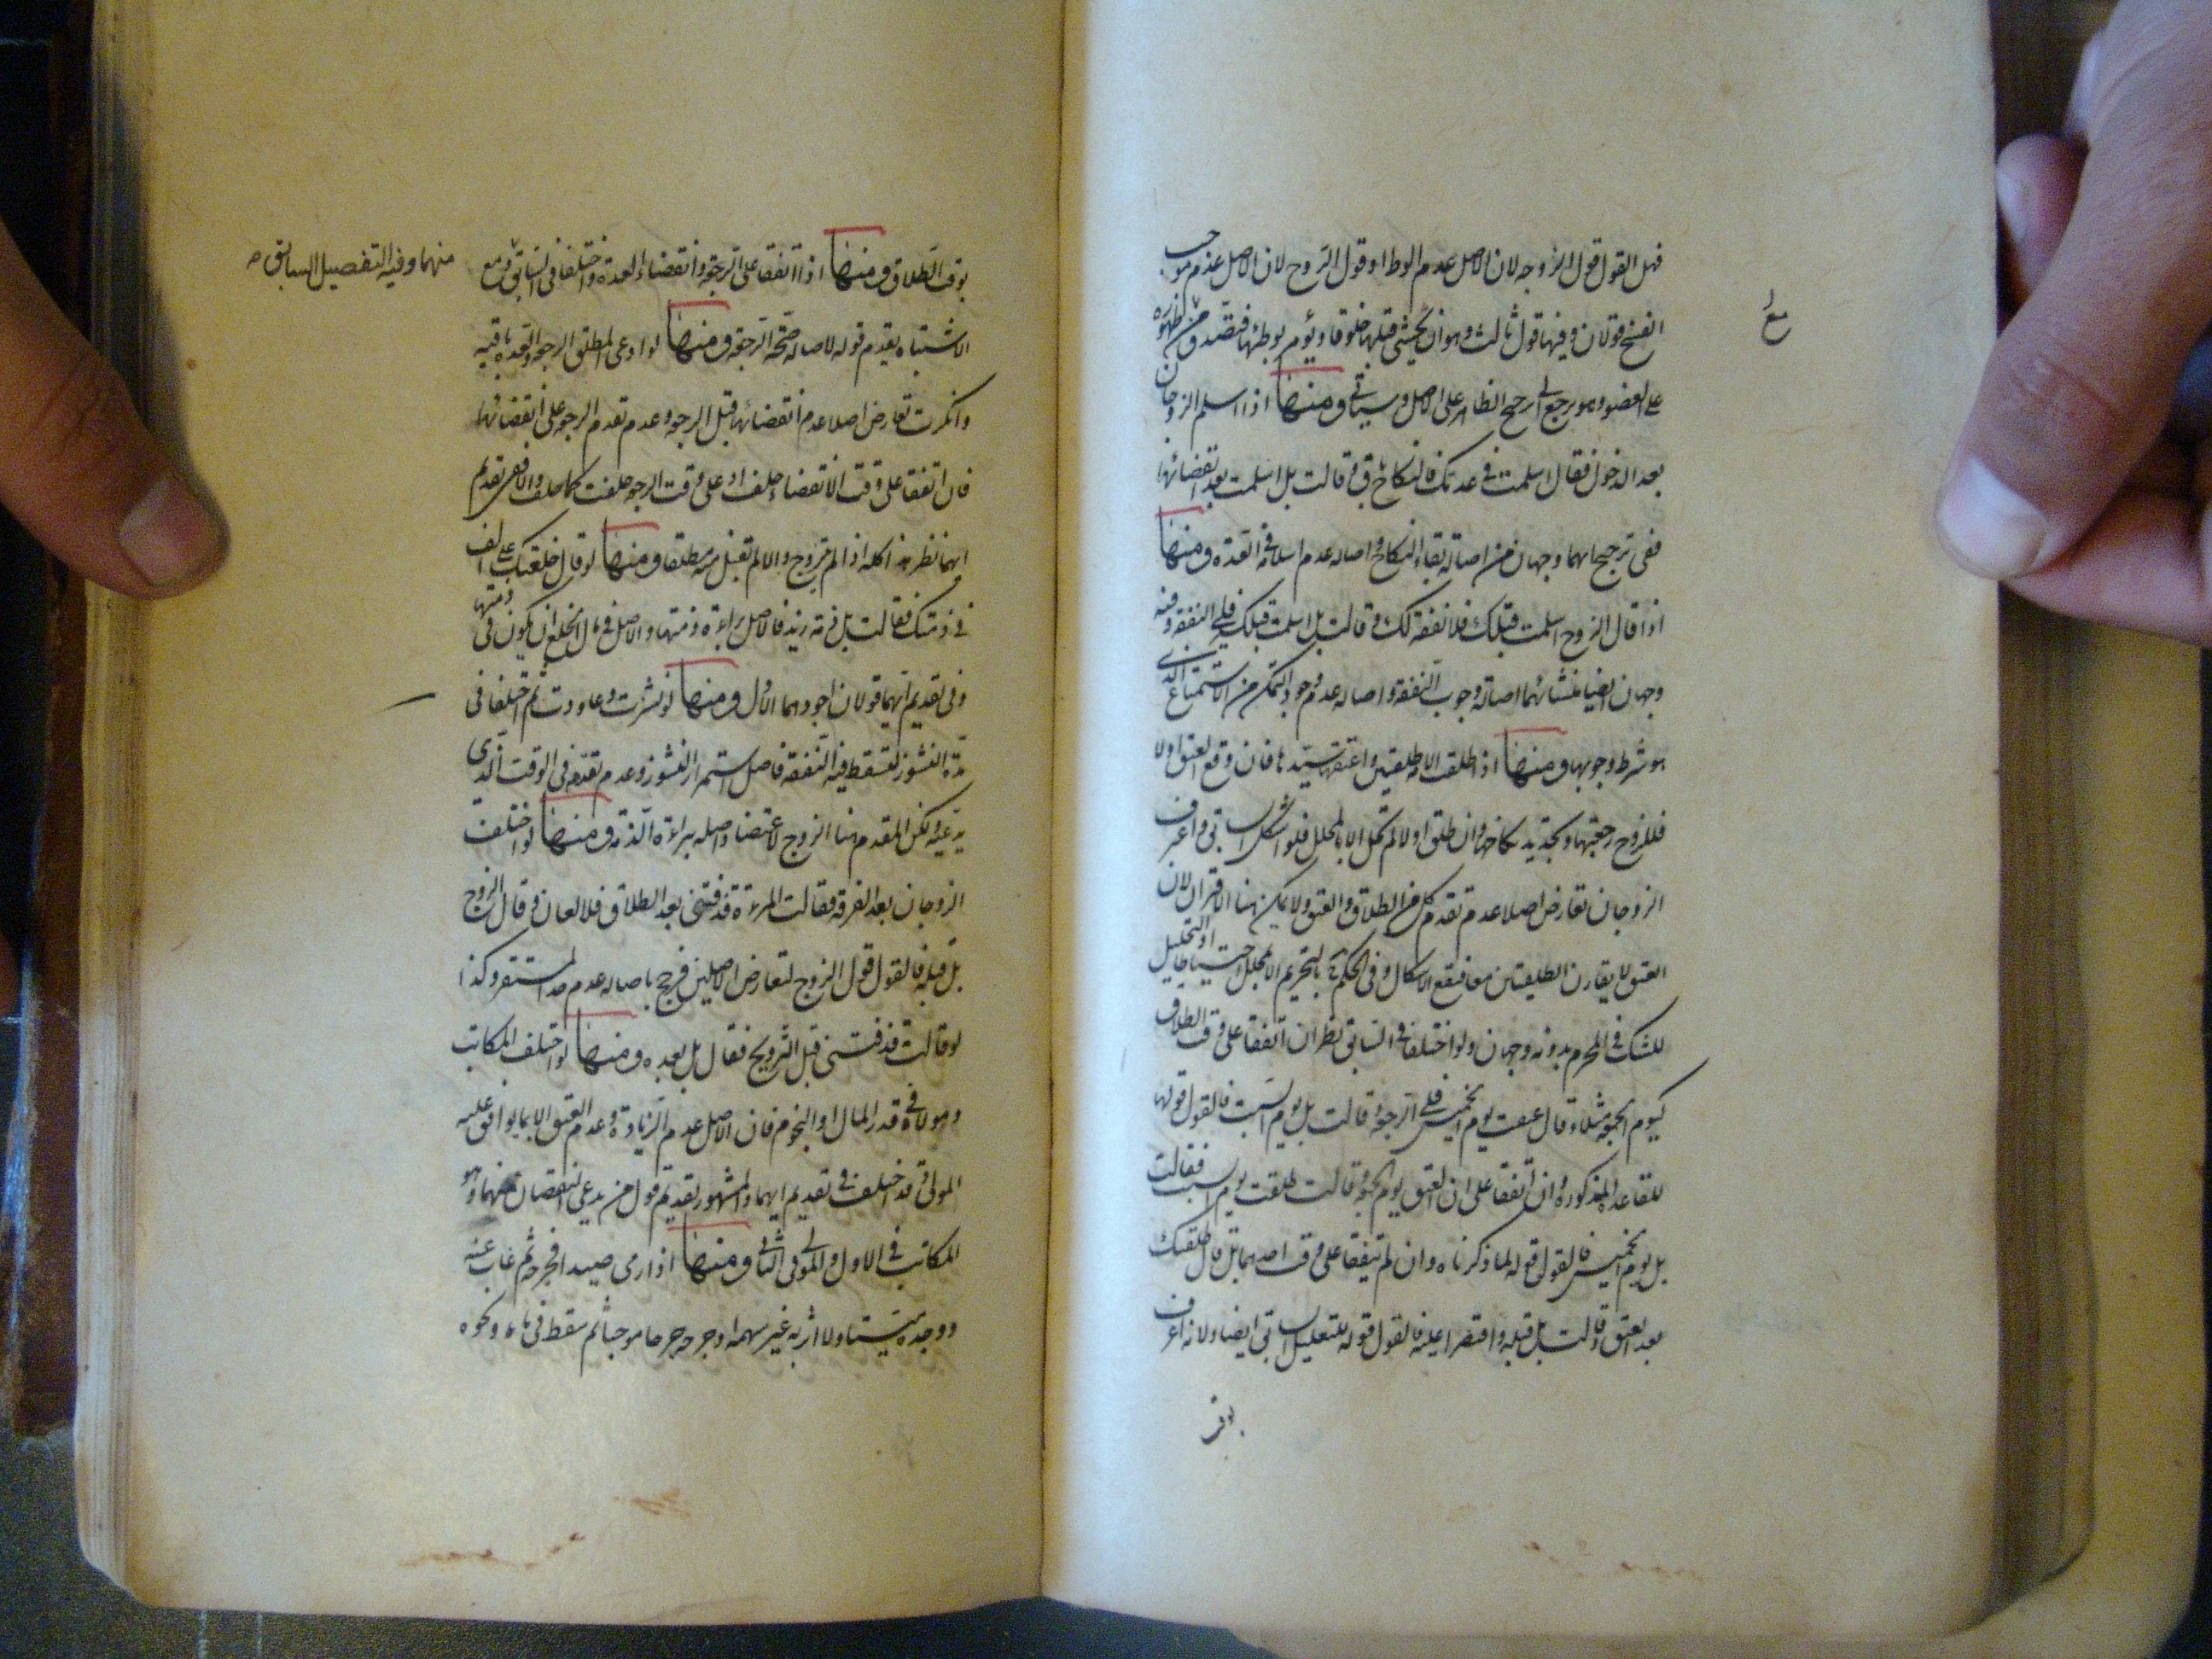 فهل القول قول الزوجه لان الاصل عدم الوطا او قول الزوج لان الاصل عدم موجب
الفسخ قولان وفيها قول ثالث وهو ان يحشى قبلها خلوقا ويؤمر بوطئها فيصدق مع ظهوره
على العضو وهو يرجع الى ترجيح الظاهر على الاصل وسياتى ومنها اذا اسلم الزوجان
بعد الدخول فقال اسلمت فى عدتك فالنكاح باق وقالت بل اسلمت بعد انقضائها
ففى ترجيح ايهما وجهان من اصالة بقاء النكاح واصاله عدم اسلامه فى العدة ومنها
اذا قال الزوج اسلمت قبلك فلا نفقة لك وقالت بل اسلمت قبلك فلى النفقه وفيه
وجهان ايضا منشائهما اصالة وجوب النفقه واصاله عدم وجود التمكن من الاستمتاع الذى
هو شرط وجوبها ومنها اذا طلقت الامة طلقتين واعتقها سيدها فان وقع العتق اولا
فللزوج رجعتها وتجديد نكاحها وان طلق اولا لم تحل الا بالمحلل فلو اشكل السابق واعترف
الزوجان تعارض اصلا عدم تقدم كل من الطلاق والعتق ولا يمكن هنا الاقتران لان
العتق لا يقارن الطلقتين معا فيقع الاشكال وفى الحكم ح بالتحريم الا بالمحلل احتياطا او التحليل
للشك فى المحرم بدونه وجهان ولو اختلفا فى السابق نظر ان اتفقا على وقت الطلاق
كيوم الجمعة مثلا وقال عتقت يوم الخميس فلى الرجعة وقالت بل يوم السبت فالقول قولها
للقاعدة المذكورة وان اتفقا على ان العتق يوم الجمعة وقالت طلقت يوم السبت فقالت
بل يوم الخميس فالقول قوله لما ذكرناه وان لم يتفقا على وقت احدهما بل قال طلقتك
بعد العتق وقالت بل قبله واقتصرا عليه فالقول قوله للتعليل السابق ايضا ولانه اعرف
بوقت
بوقت الطلاق ومنها اذا اتفقا على الرجعة وانقضاء العدة واختلفا فى السابق فمع
منهما وفيه التفصيل السابق
الاشتباه يقدم قوله لاصاله صحة الرجعة ومنها لو ادعى المطلق الرجعة والعدة باقية
وانكرت تعارض اصلا عدم انقضائها قبل الرجعه وعدم تقدم الرجعه على انقضائها
فان اتفقا على وقت الانقضاء حلف او على وقت الرجعه حلفت كما سلف والا ففى تقديم
ايهما نظر هذا كله اذا لم تتزوج والا لم تقبل منه مطلقا ومنها لو قال خلعتك على الف
فى ذمتك فقالت بل فى ذمة زيد فالاصل براءة ذمتها والاصل فى مال الخلع ان يكون فى ذمتها
وفى تقديم ايهما قولان اجودهما الاول ومنها لو نشزت وعاودت ثم اختلفا فى
مدة النشوز لتسقط فيه النفقه فاصل استمرار النشوز وعدم تقدمه فى الوقت الذى
يدعيه ولكن المقدم هنا الزوج لاعتضاد اصله ببراءة الذمة ومنها لو اختلف
الزوجان بعد الفرقه فقالت المرءة قذفتنى بعد الطلاق فلا لعان وقال الزوج
بل قبله فالقول قول الزوج لتعارض الاصلين فرجح باصاله عدم حد المستقر وكذا
لو قالت قذفتنى قبل التزويج فقال بل بعده ومنها لو اختلف المكاتب
ومولاه فى قدر المال او النجوم فان الاصل عدم الزيادة وعدم العتق الا بما يوافق عليه
المولى وقد اختلف فى تقديم ايهما والمشهور تقديم قول من يدعى النقصان منهما وهو
المكاتب فى الاول والمولى فى الثانى ومنها اذا رمى صيدا فجرحه ثم غاب عنه
ووجده ميتا ولا اثر به غير سهمه او جرحه جرحا موحيا ثم سقط فى ماء ونحوه